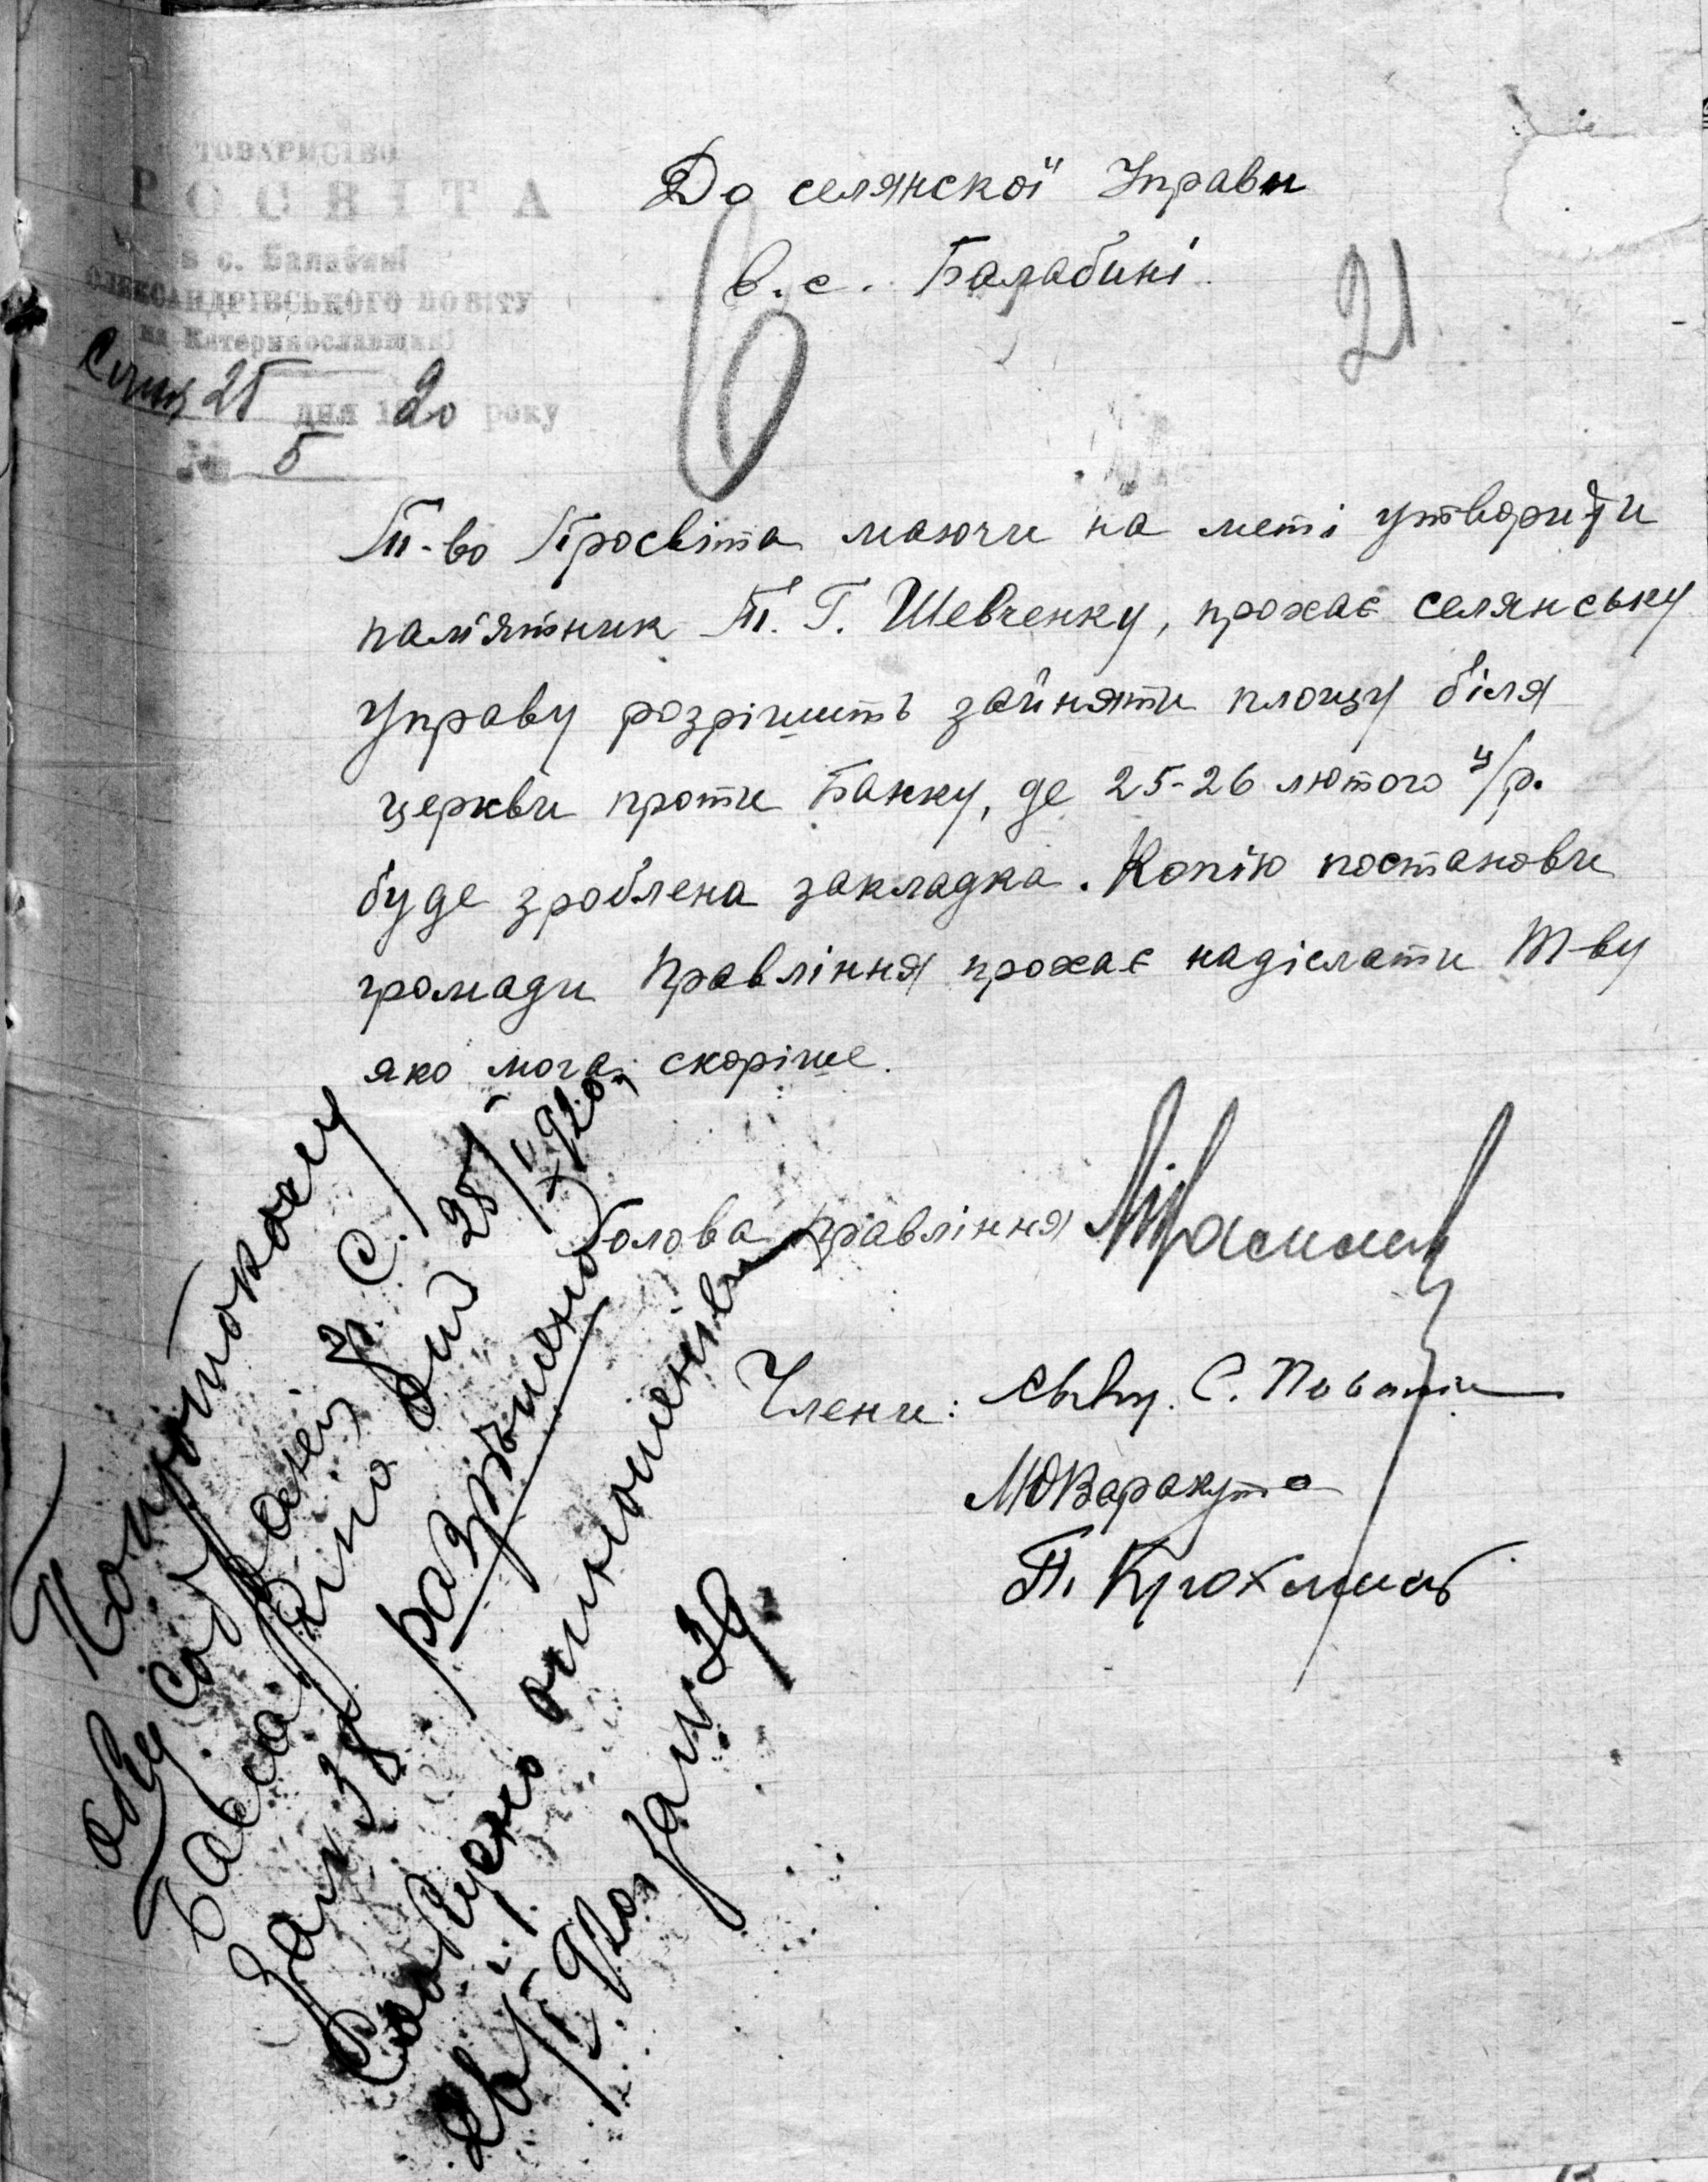 ТОВАРИСТВО
РОСВІТА
в с. Балабині
ОЛЕКСАНДРІВСЬКОГО ПОВІТУ
на Катеринославщині
25 дня 1920 року
№ 5
До селянскої Управи
в. с. Балабині
21
Т-во Просвіта маючи на меті утворити
пам'ятник Т. Г. Шевченку, прохає селянську
Управу розрішить зайняти площу біля
церкви проти Банку, де 25-26 лютого ц/р.
буде зроблена закладка. Копію постанови
громади Правління прохає надіслати Т-ву
яко мога скоріше.
Голова правління
Члени: С.
М Варакута
П. Крохмаль
По протоколу
С.
1920
разрѣшено
Сообщено отношенiем